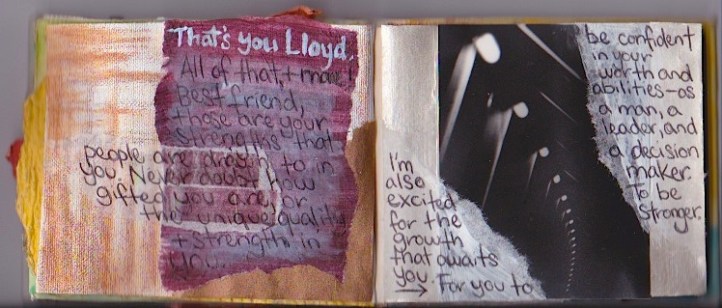 That's you Lloyd.
All of that, + more!
Best friend,
those are your
strengths that
people are drawn to in
you. Never doubt how
gifted you are, or
the unique qualities
+ strengths in
you...
I'm
also
excited
for the
growth
that awaits
you. For you to
be confident
in your
worth and
abilities-as
a man, a
leader, and
a decision
maker.
To be
stronger.